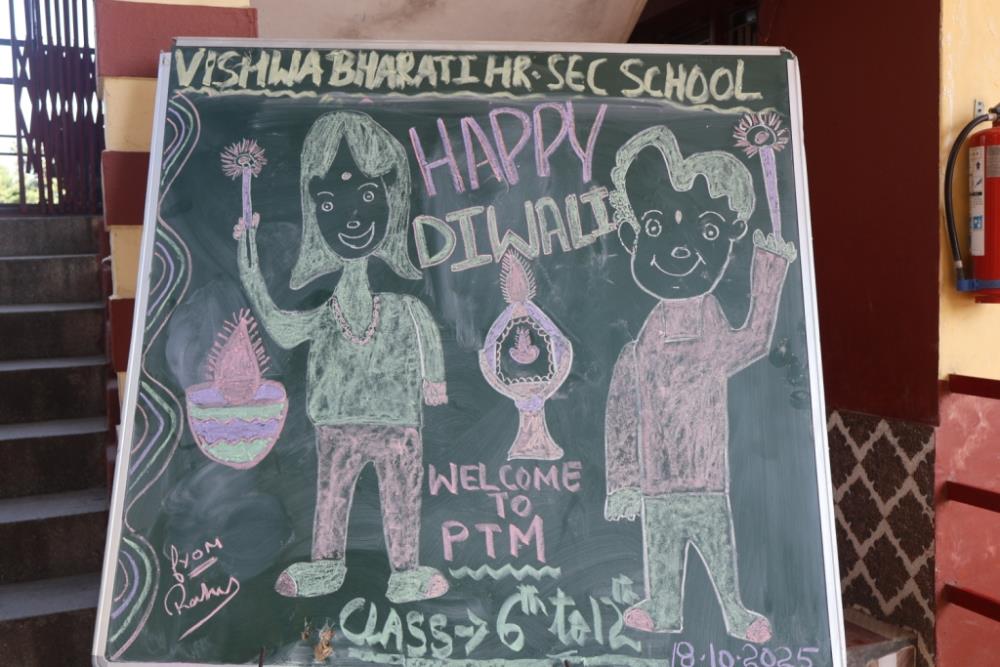 VISHWA BHARATI HR. SEC SCHOOL
HAPPY
DIWALI
WELCOME
TO
PTM
CLASS → 6th to 12th
18.10.2025